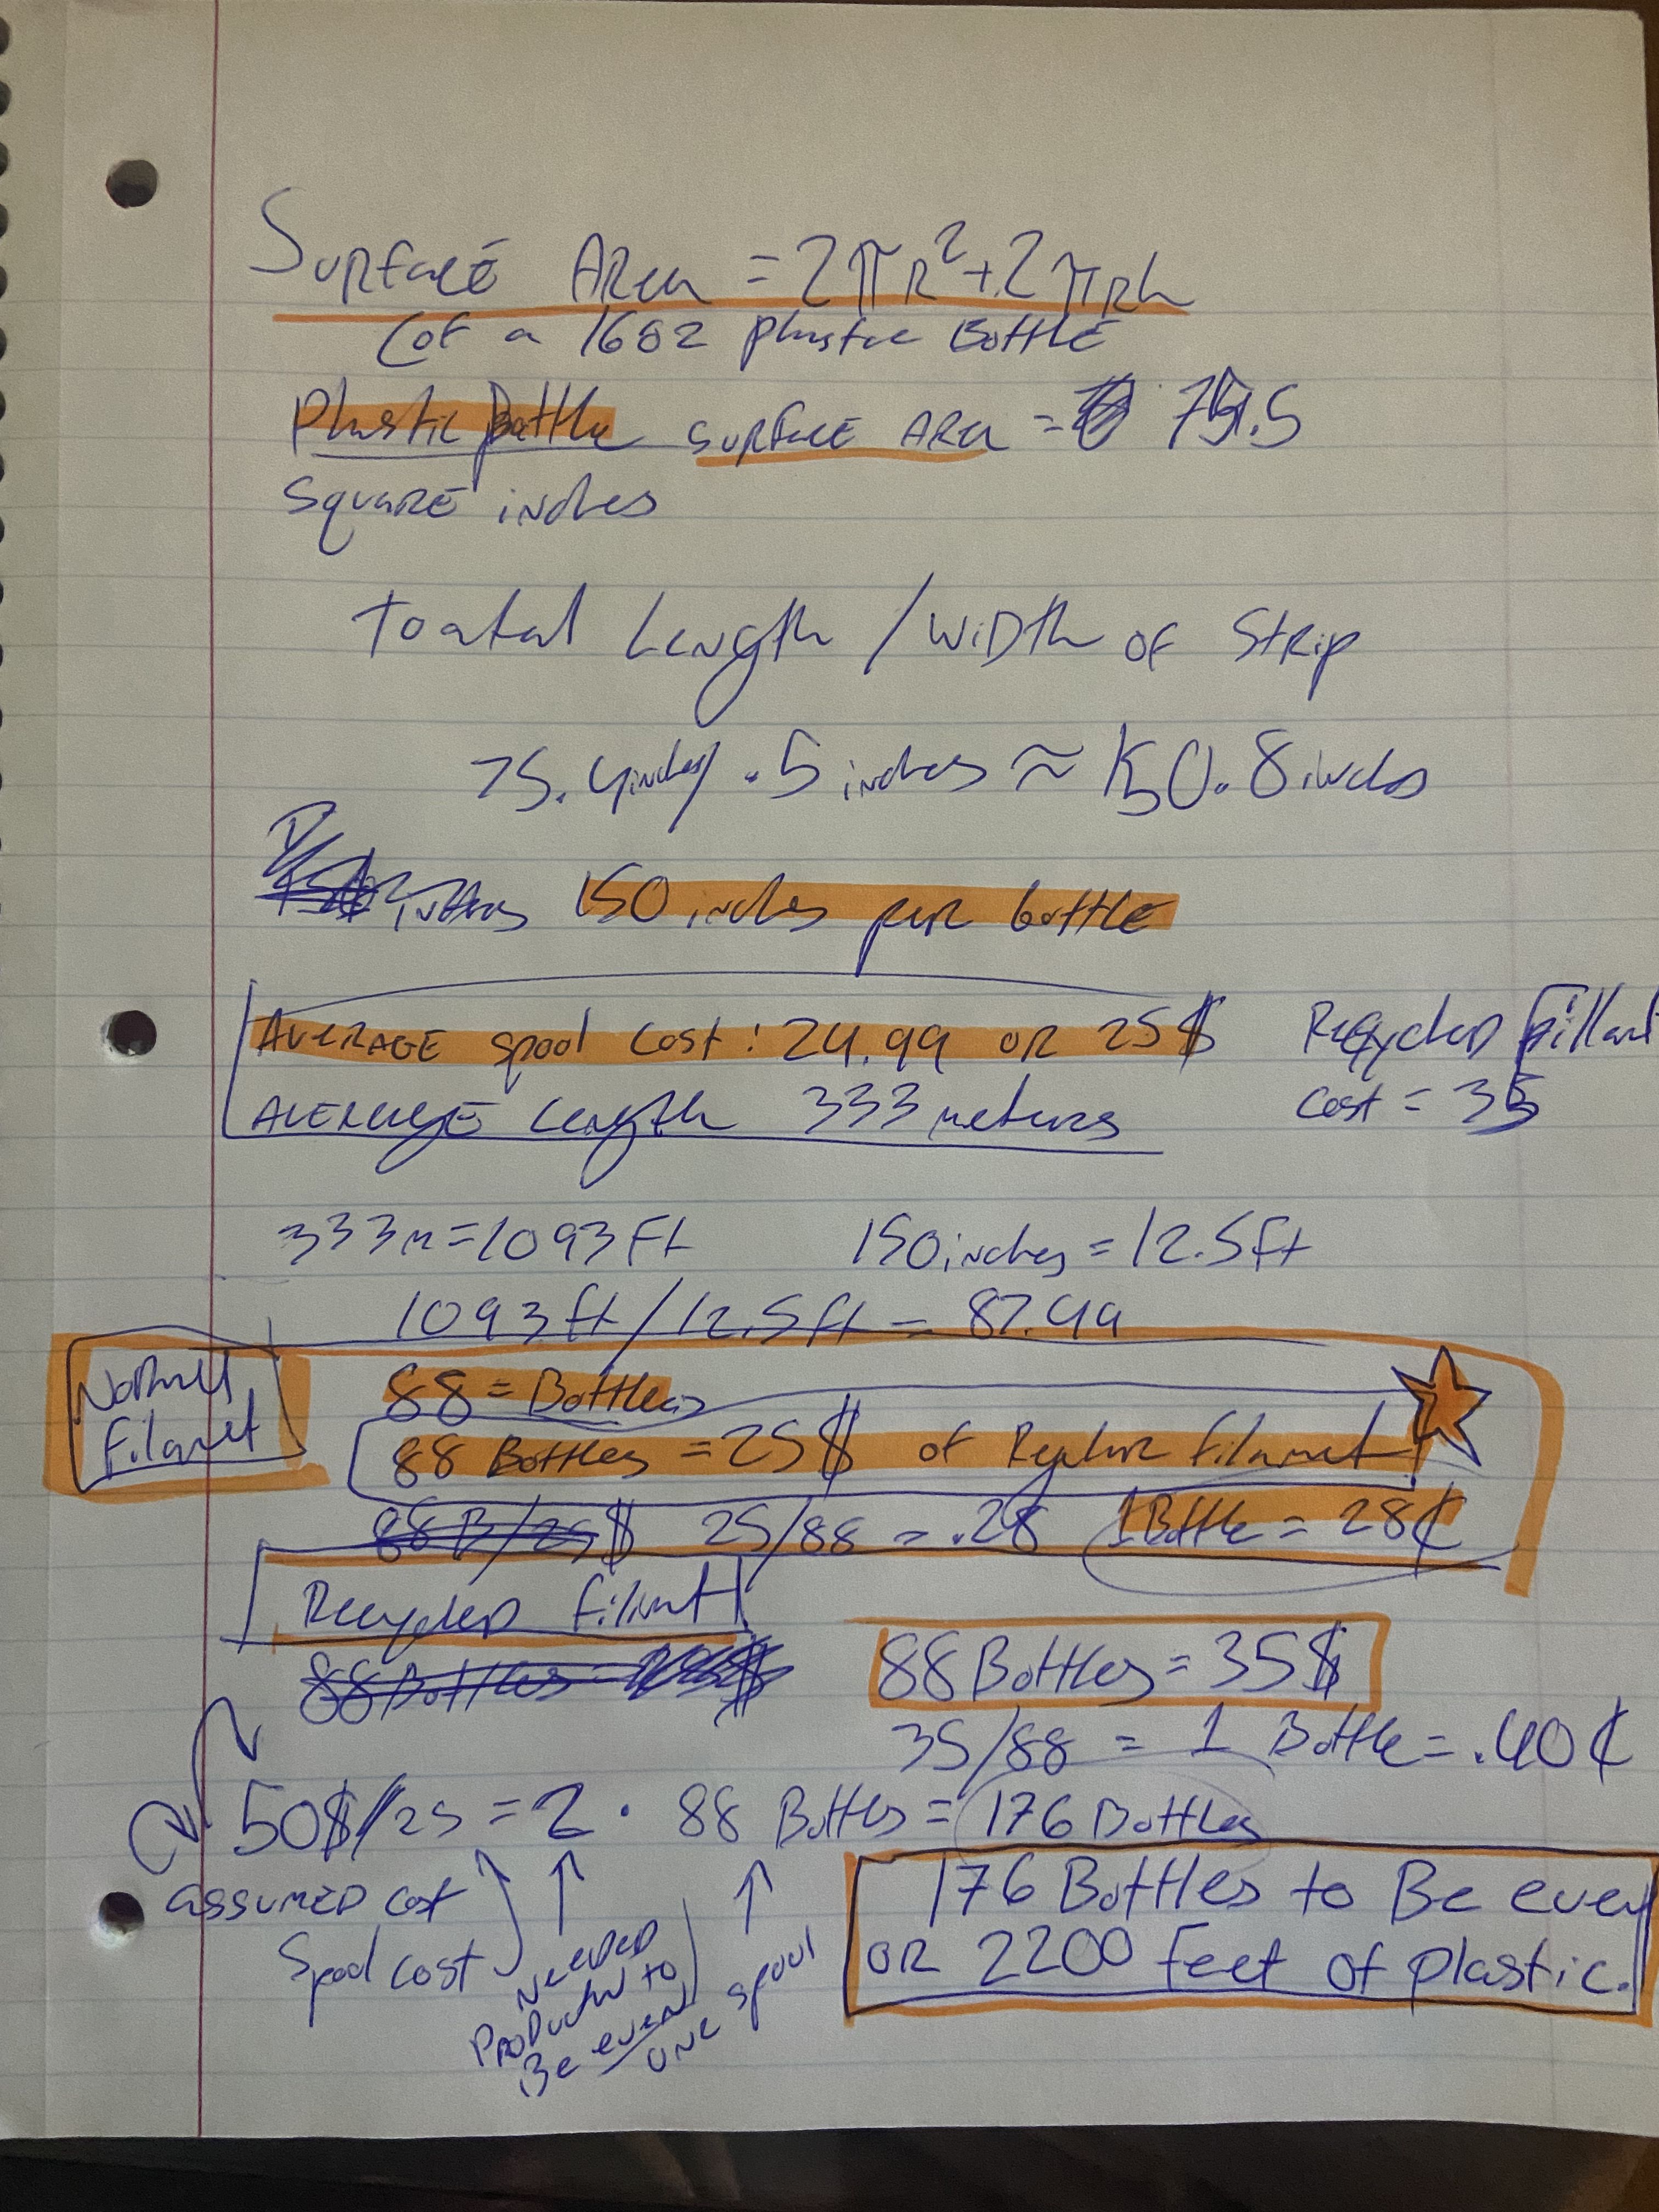 Surface Area = 2πR²+2πRh
(of a 16oz plastic Bottle
Plastic Bottle surface Area = 75.5
Square inches
Toatal Length / Width of Strip
75.4inches/ .5 inches ≈ 150.8inches
150 inches per bottle
Average spool cost: 24.99 or 25$
Average Length 333 meters
Recycled
cost = 35
333m=1093Ft
150inches = 12.5ft
1093ft/12.5ft = 87.44
Normal
Filamet
88 = Bottles
88 Bottles = 25$ of Regular filamet
88B/25$ 25/88 = .28 1 Bottle = 28¢
Recycled
88 Bottles =
88 Bottles = 35$
35/88 = 1 Bottle = .40¢
50$/25 = 2 · 88 Bottles = 176 Bottles
assumed cost
Spool cost
Needed
to
Be even
one spool
176 Bottles to Be even
or 2200 Feet of plastic.